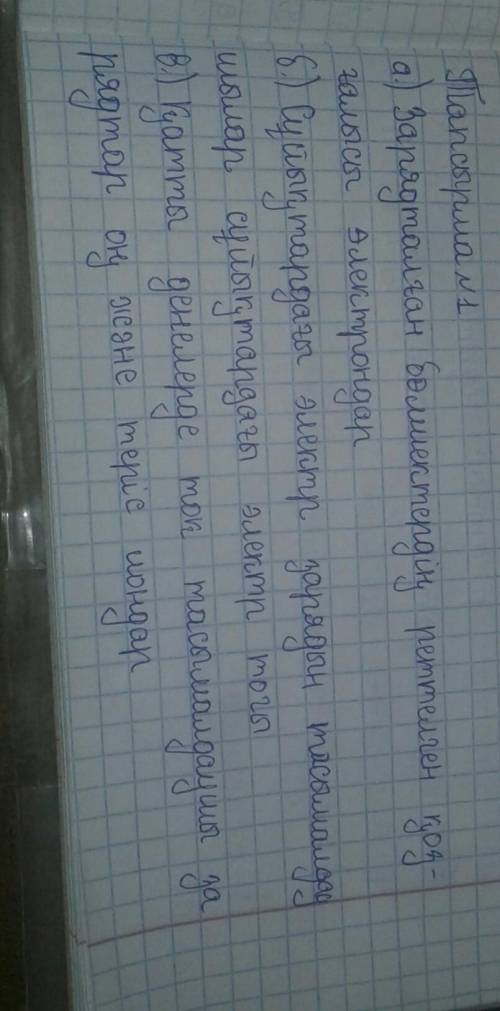 Тапсырма №1
а.) Зарядталған бөлшектердің реттелген қоз-
ғалысы электрондар
б.) Сұйықтардағы электр зарядын тасымалдау
шылар сұйықтардағы электр тогы
в.) Қатты денелерде ток тасымалдаушы за
рядтар оң және теріс иондар